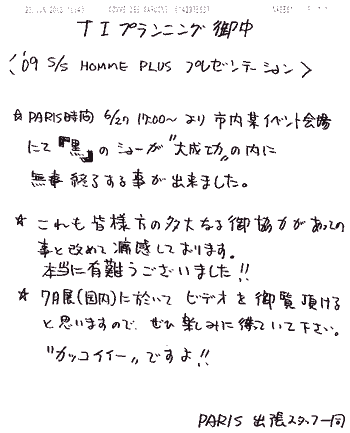 TIプランニング 御中
〈'09 S/S HOMME PLUS プレゼンテーション〉
☆ PARIS時間 6/27 17:00〜より 市内某イベント会場
にて『黒』のショーが"大成功"の内に
無事終了する事が出来ました。
☆ これも皆様方の多大なる御協力があっての
事と改めて痛感しております。
本当に有難うございました!!
☆ 7月展(国内)に於いてビデオを御覧頂ける
と思いますので、ぜひ楽しみに待っていて下さい。
"カッコイイー"ですよ!!
PARIS 出張スタッフ一同